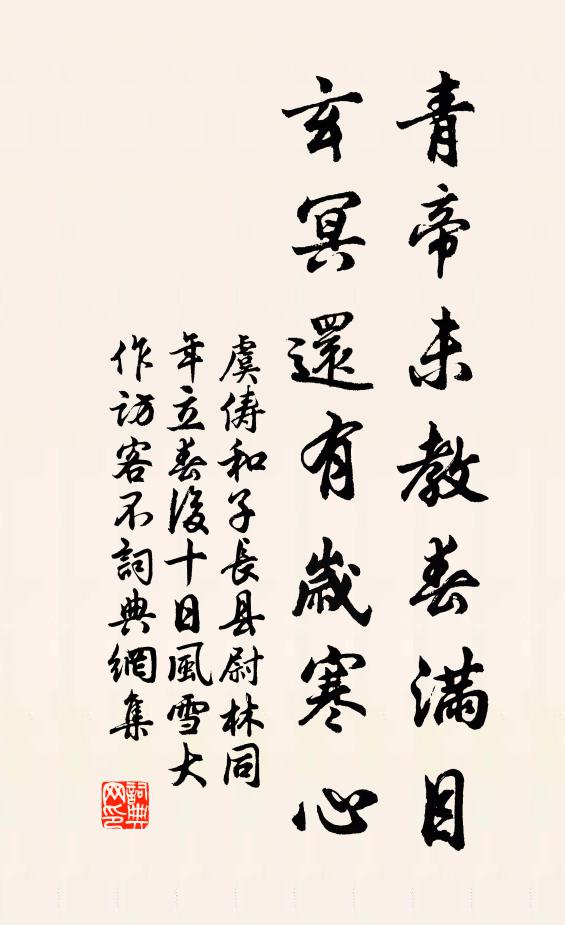 青帝未教春滿目
玄冥還有歲寒心
虞儔和子長县尉林同
年立春後十日風雪大
作访客不詞典網集
詞典
网印